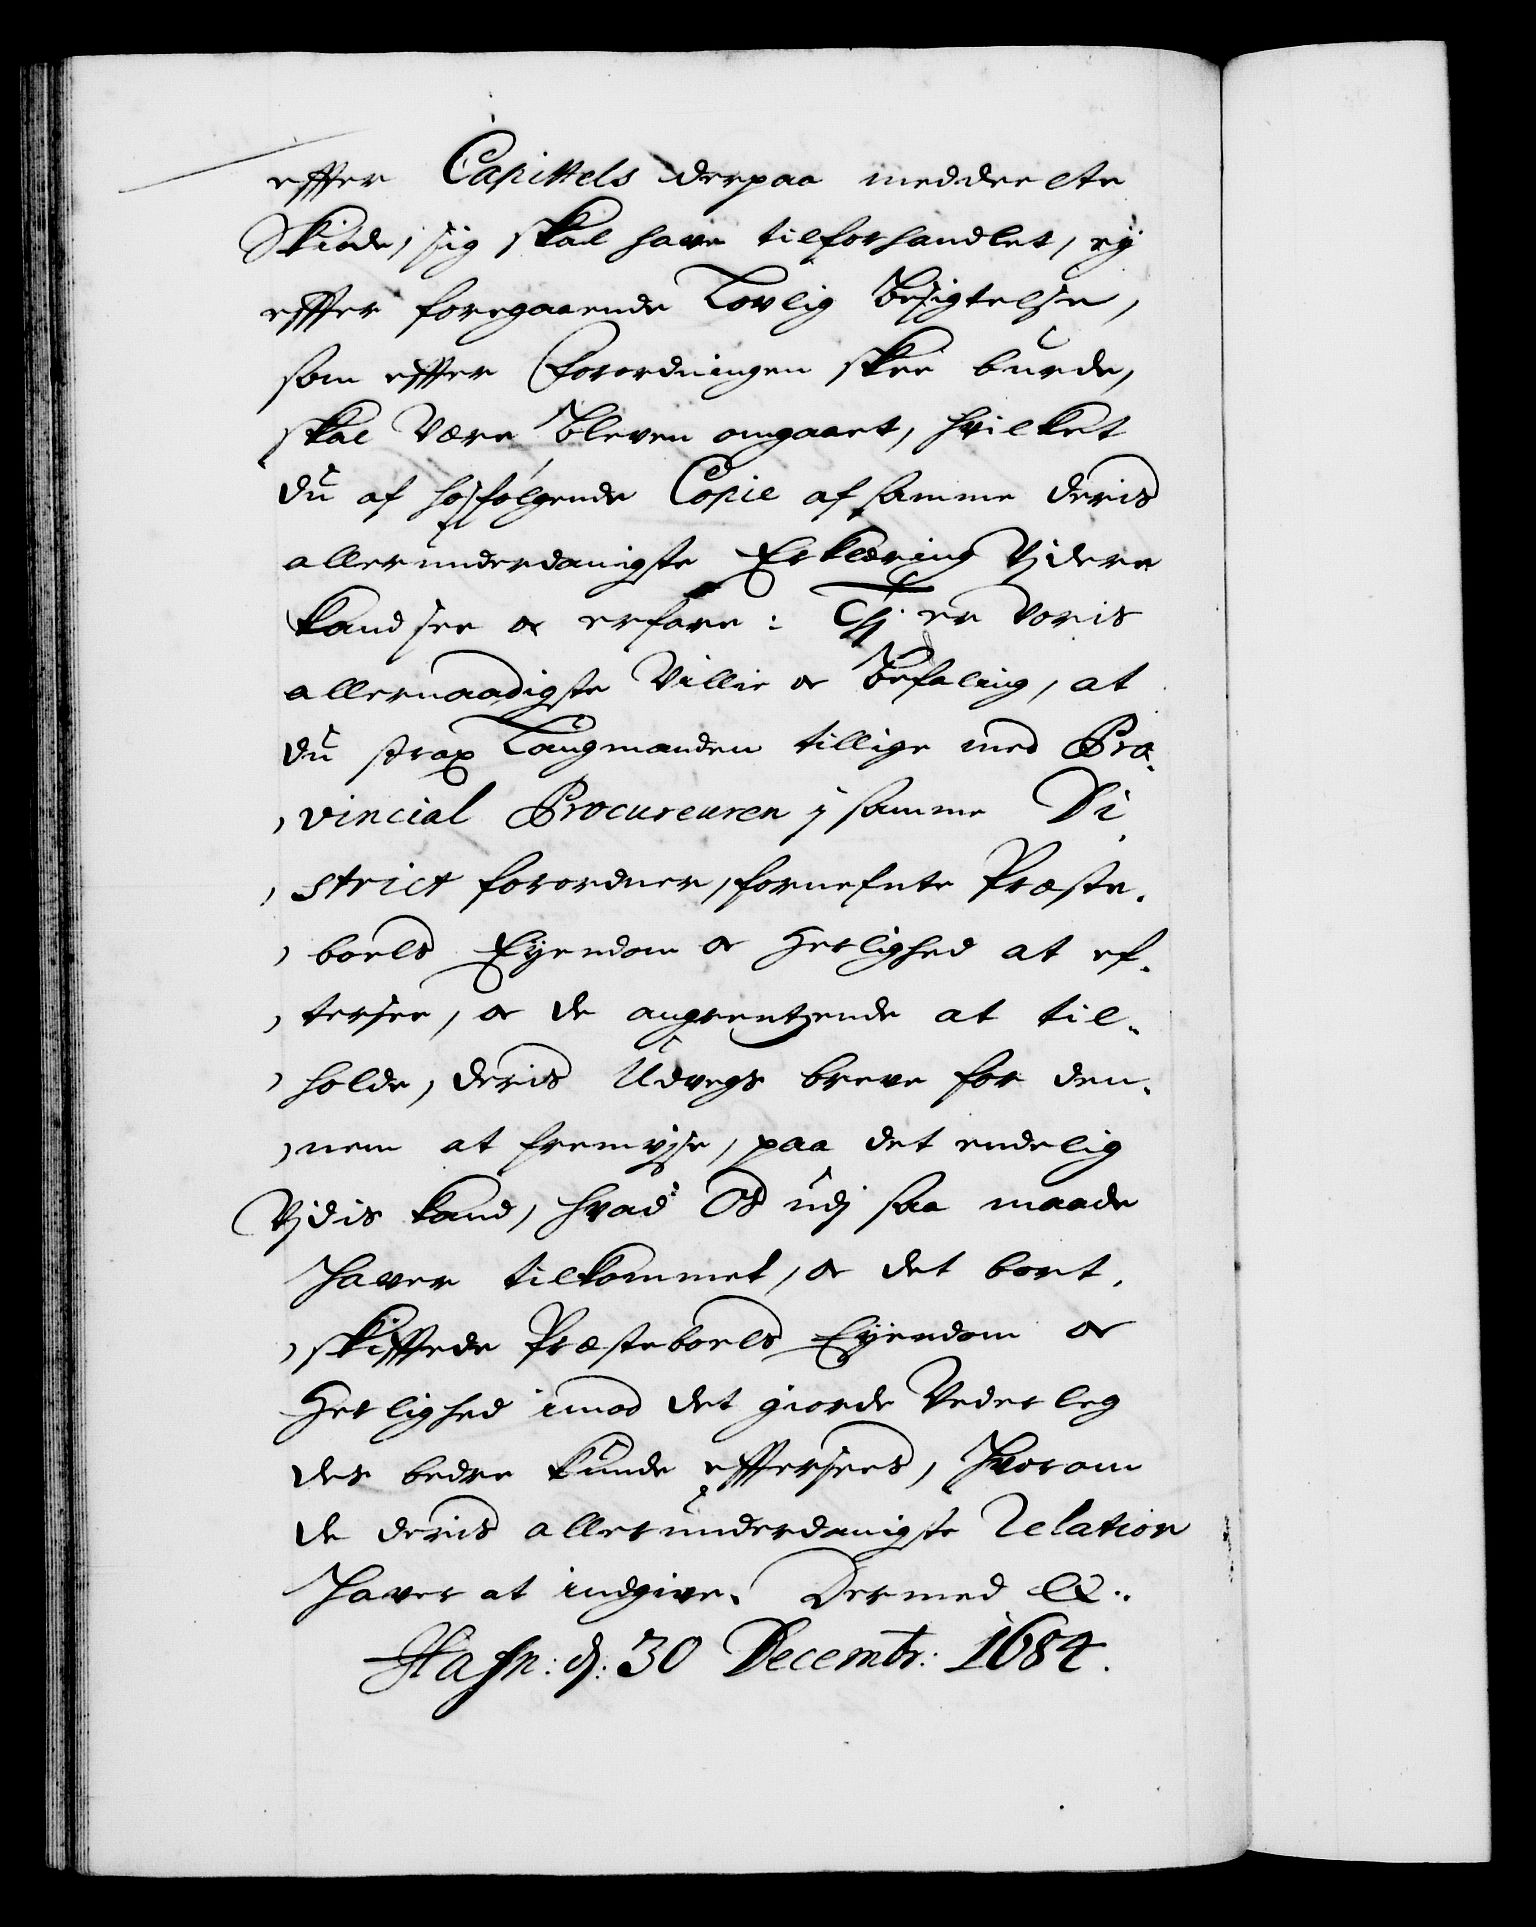 effter Capittels derpaa meddeelte
Skiøde, sig skal have tilforhandlet, ey
effter foregaaende Lovlig Besigtelse,
som effter Forordningen skee burde,
skal være Bleven omgaaet, hvilket
du af hosfølgende Copie af samme deris
allerunderdanigste Erklæring Vjdere
kand see oc erfare: Thj er Voris
allernaadigste Villie oc Befaling, at
du strax Laugmanden tillige med Pro-
vincial Procureuren j samme Di-
strict forordner, fornefnte Præste-
boels Eyendom oc Herlighed at ef-
tersee, oc de angrentzende at til-
holde, deris Udvegs breve for den-
nem at fremvjse, paa det endelig
Vjdis kand, hvad Os udj saa maade
haver tilkommet, oc det bort-
skifftede Præsteboels Eyendom oc
Herlighed imod det giorde Vederleg
des bedre kunde efftersees, Hvorom
de deris allerunderdanigste Relation
haver at indgive. Dermed &c.
Hafn: d: 30 Decembr: 1684.